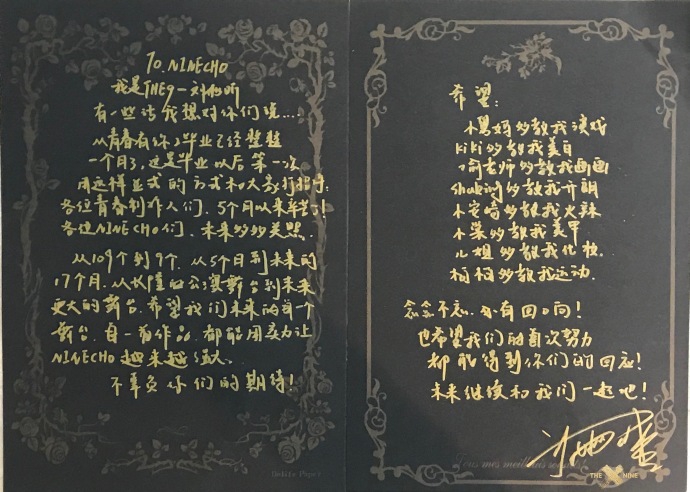 To. NINECHO
我是THE9-刘雨昕
有一些话我想对你们说...
从青春有你2毕业已经整整
一个月了,这是毕业以后第一次
用这样正式的方式和大家打招呼.
各位青春制作人们.5个月以来辛苦了
各位NINECHO们.未来多多关照.
从109个到9个.从5个月到未来的
17个月.从长隆的公演舞台到未来
更大的舞台.希望我们未来的每一个
舞台.每一首作品.都能用实力让
NINECHO越来越强大.
不辜负你们的期待!
希望:
小男妈多教我演戏
KiKi多教我美白
喻老师多教我画画
Shaking多教我开朗
小安崎多教我火辣
小棠多教我美甲
儿姐多教我化妆.
柯柯多教我运动.
念念不忘.必有回响!
也希望我们的每次努力
都能得到你们的回应!
未来继续和我们一起吧!
Tous mes meilleurs
THE NINE